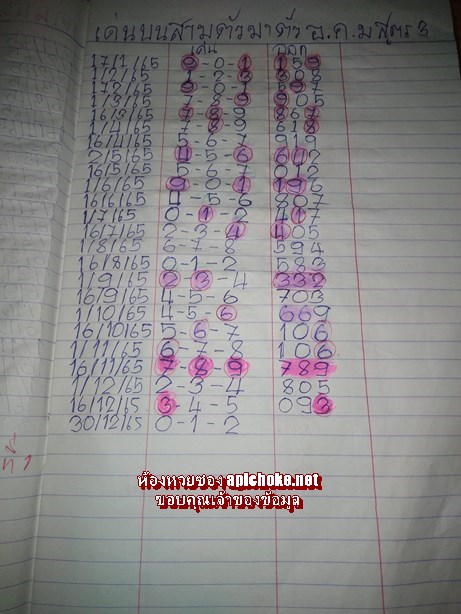 เด่นบนสามตัวมาตัว อ.ค.ม สูตร 3
เด่น ออก
17/1/65 9-0-1 159
1/2/65 1-2-3 308
17/2/65 9-0-1 597
1/3/65 7-8-9 905
16/3/65 7-8-9 867
1/4/65 7-8-9 618
16/4/65 5-6-7 919
2/5/65 4-5-6 642
16/5/65 5-6-7 012
1/6/65 9-0-1 196
16/6/65 4-5-6 807
1/7/65 0-1-2 417
16/7/65 2-3-4 405
1/8/65 6-7-8 594
16/8/65 0-1-2 583
1/9/65 2-3-4 332
16/9/65 4-5-6 703
1/10/65 4-5-6 669
16/10/65 5-6-7 106
1/11/65 6-7-8 106
16/11/65 7-8-9 789
1/12/65 2-3-4 805
16/12/65 3-4-5 093
30/12/65 0-1-2
ห้องหวยซอง apichoke.net
ขอบคุณเจ้าของข้อมูล